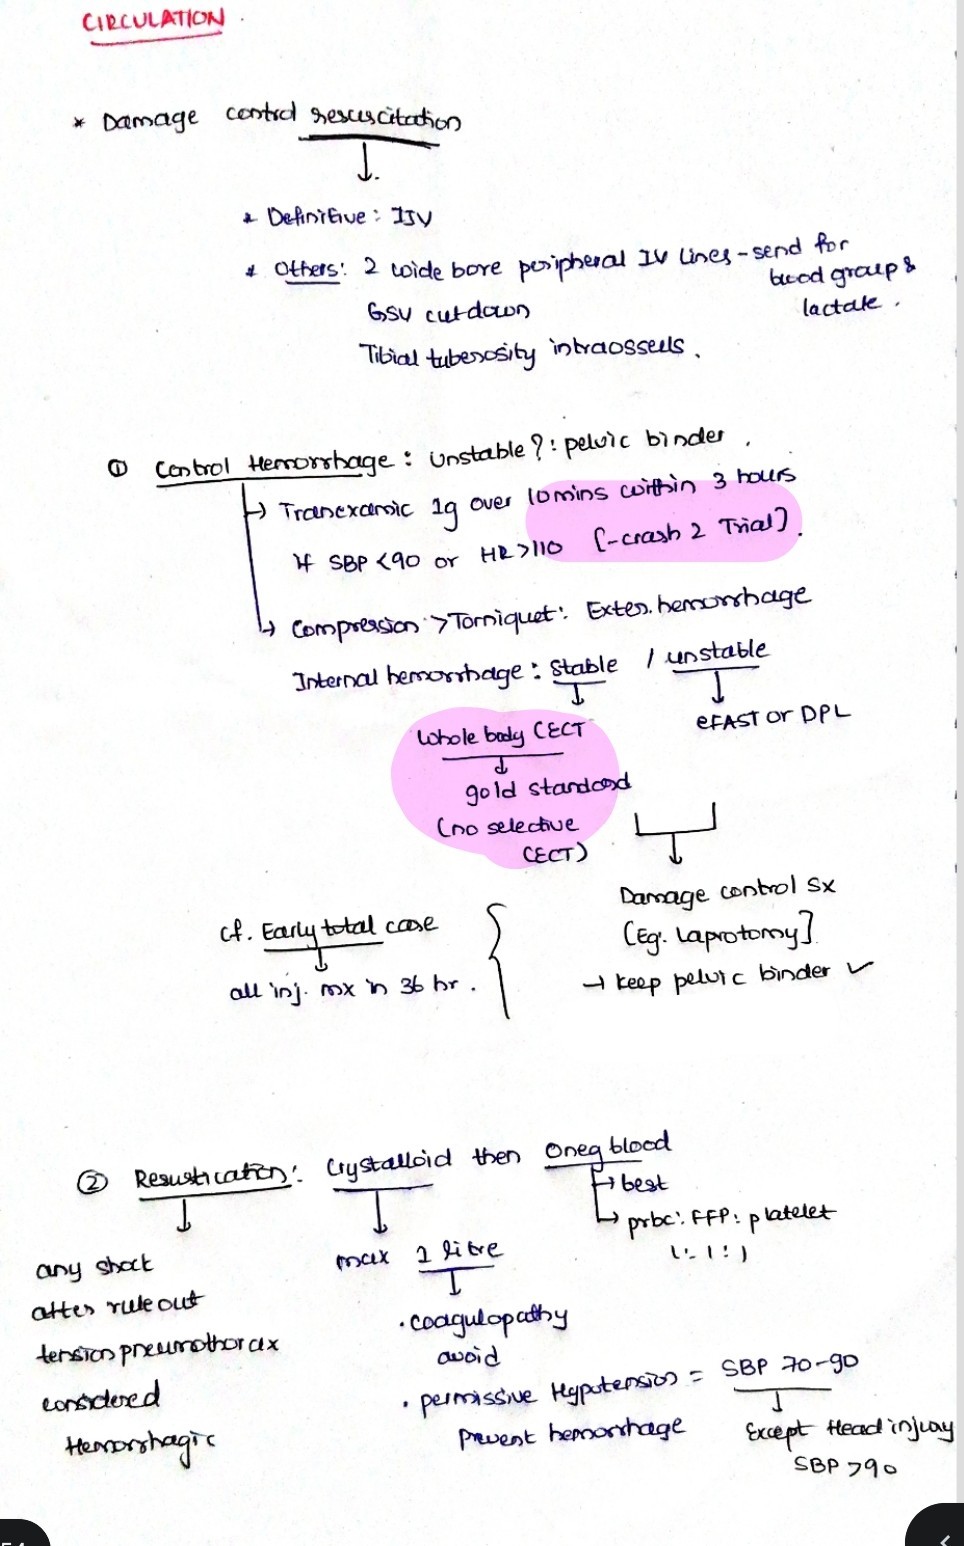 CIRCULATION.
* Damage control resuscitation
↓.
* Definitive : IJV
* Others : 2 wide bore peripheral IV lines - send for
blood group &
lactate.
GSV cutdown
Tibial tuberosity intraosseus.
① Control Hemorrhage : Unstable? : pelvic binder.
→ Tranexamic 1g over 10mins within 3 hours
If SBP <90 or HR >110 (-crash 2 Trial).
↳ Compression > Torniquet : Exter. hemorrhage
Internal hemorrhage : Stable / unstable
↓ ↓
Whole body CECT eFAST or DPL
↓
gold standard
(no selective
CECT)
↓
Damage control Sx
(Eg. Laprotomy]
→ keep pelvic binder ✓
cf. Early total case
↓
all inj. mx in 36 hr.
② Resustication : Crystalloid then Oneg blood
→ best
↳ prbc : FFP : platelet
1 : 1 : 1
↓
any shock
after rule out
tension pneumothorax
considered
Hemorrhagic
↓
max 1 litre
↓
. coagulopathy
avoid
. permissive Hypotension = SBP 70-90
Prevent hemorrhage
↓
Except Head injury
SBP >90